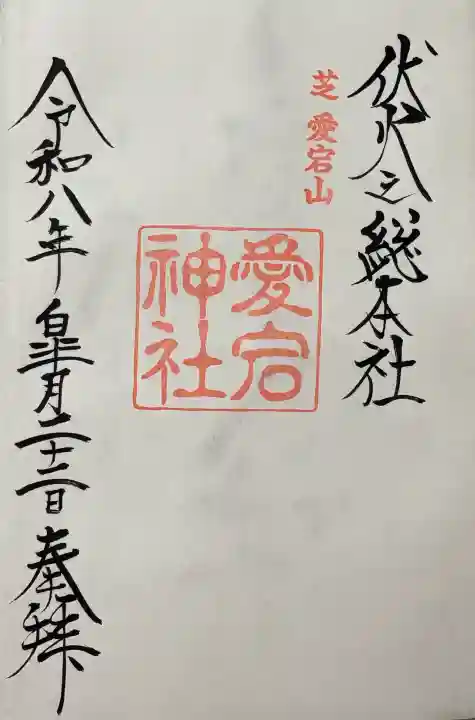 伏火之総本社
芝 愛宕山
愛宕
神社
令和八年 皐月二十二日 奉拝